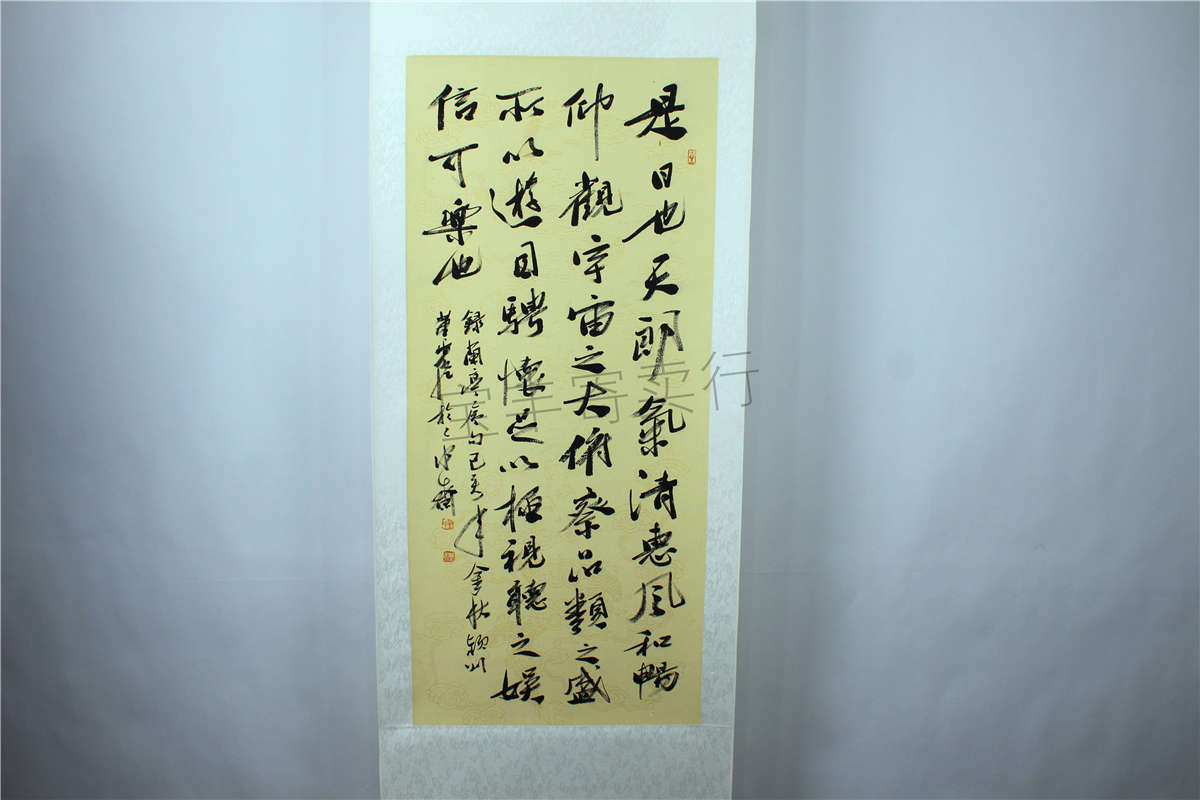 是日也天朗氣清惠风和暢
仰觀宇宙之大俯察品類之盛
所以遊目騁懷足以極視聽之娱
信可樂也
錄蘭亭序句己亥年金秋潁川
寄卖行